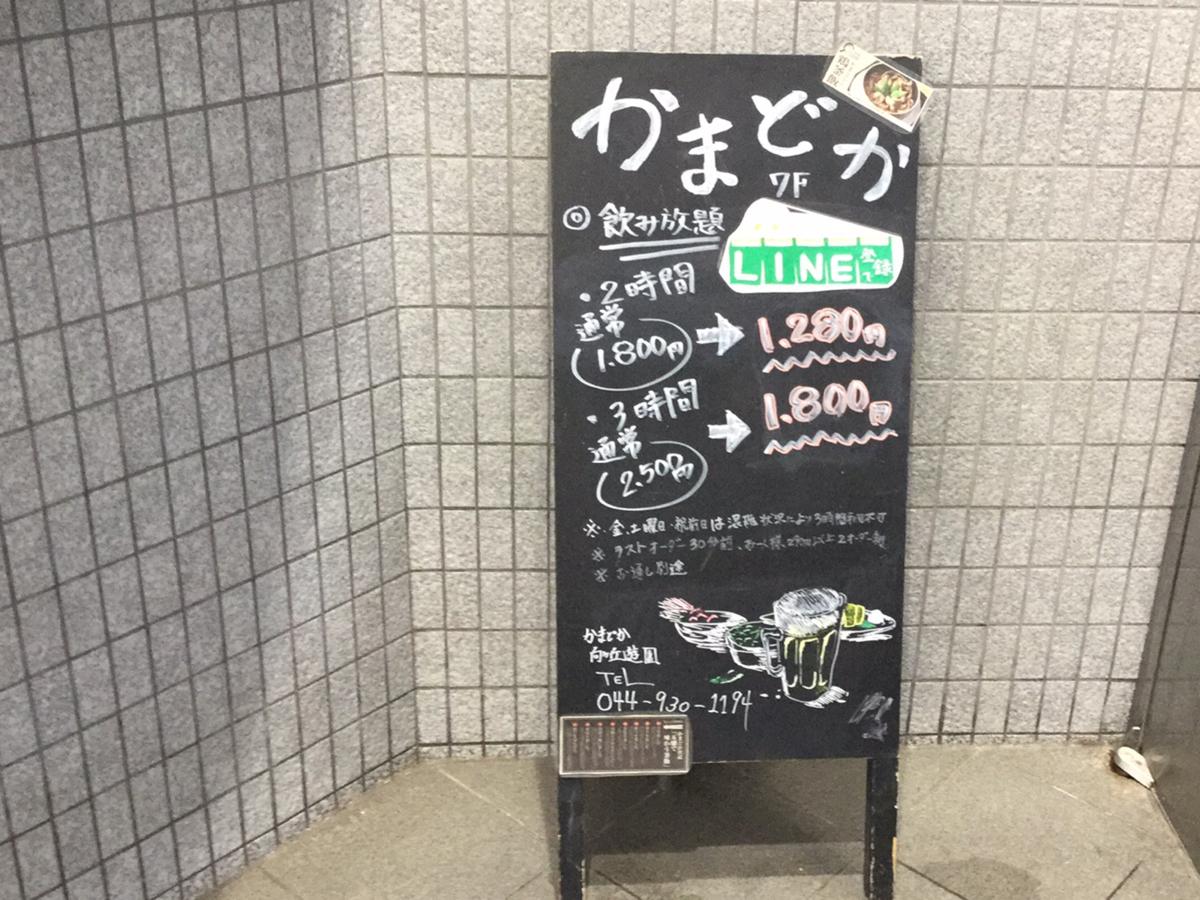 かまどか
7F
◎飲み放題
LINE登録で
・2時間
通常
1.800円
→
1.280円
・3時間
通常
2.500円
→
1.800円
※金、土曜日・祝前日は混雑状況により3時間利用不可
※ラストオーダー30分前、お一人様290円以上2オーダー制
※お通し別途
かまどか
向ヶ丘遊園
TEL
044-930-1194
鶏釜飯